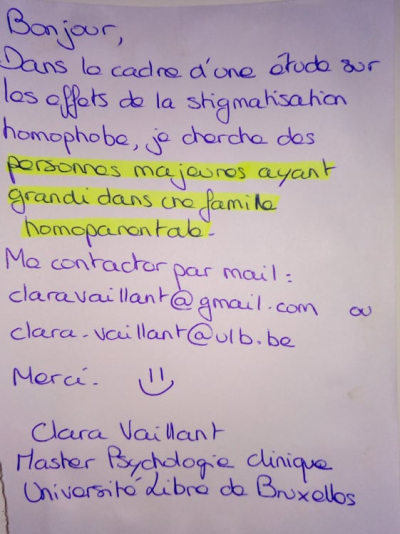 Bonjour,
Dans le cadre d'une étude sur
les effets de la stigmatisation
homophobe, je cherche des
personnes majeures ayant
grandi dans une famille
homoparentale.
Me contacter par mail :
claravaillant@gmail.com ou
clara.vaillant@ulb.be
Merci.
Clara Vaillant
Master Psychologie clinique
Université Libre de Bruxelles